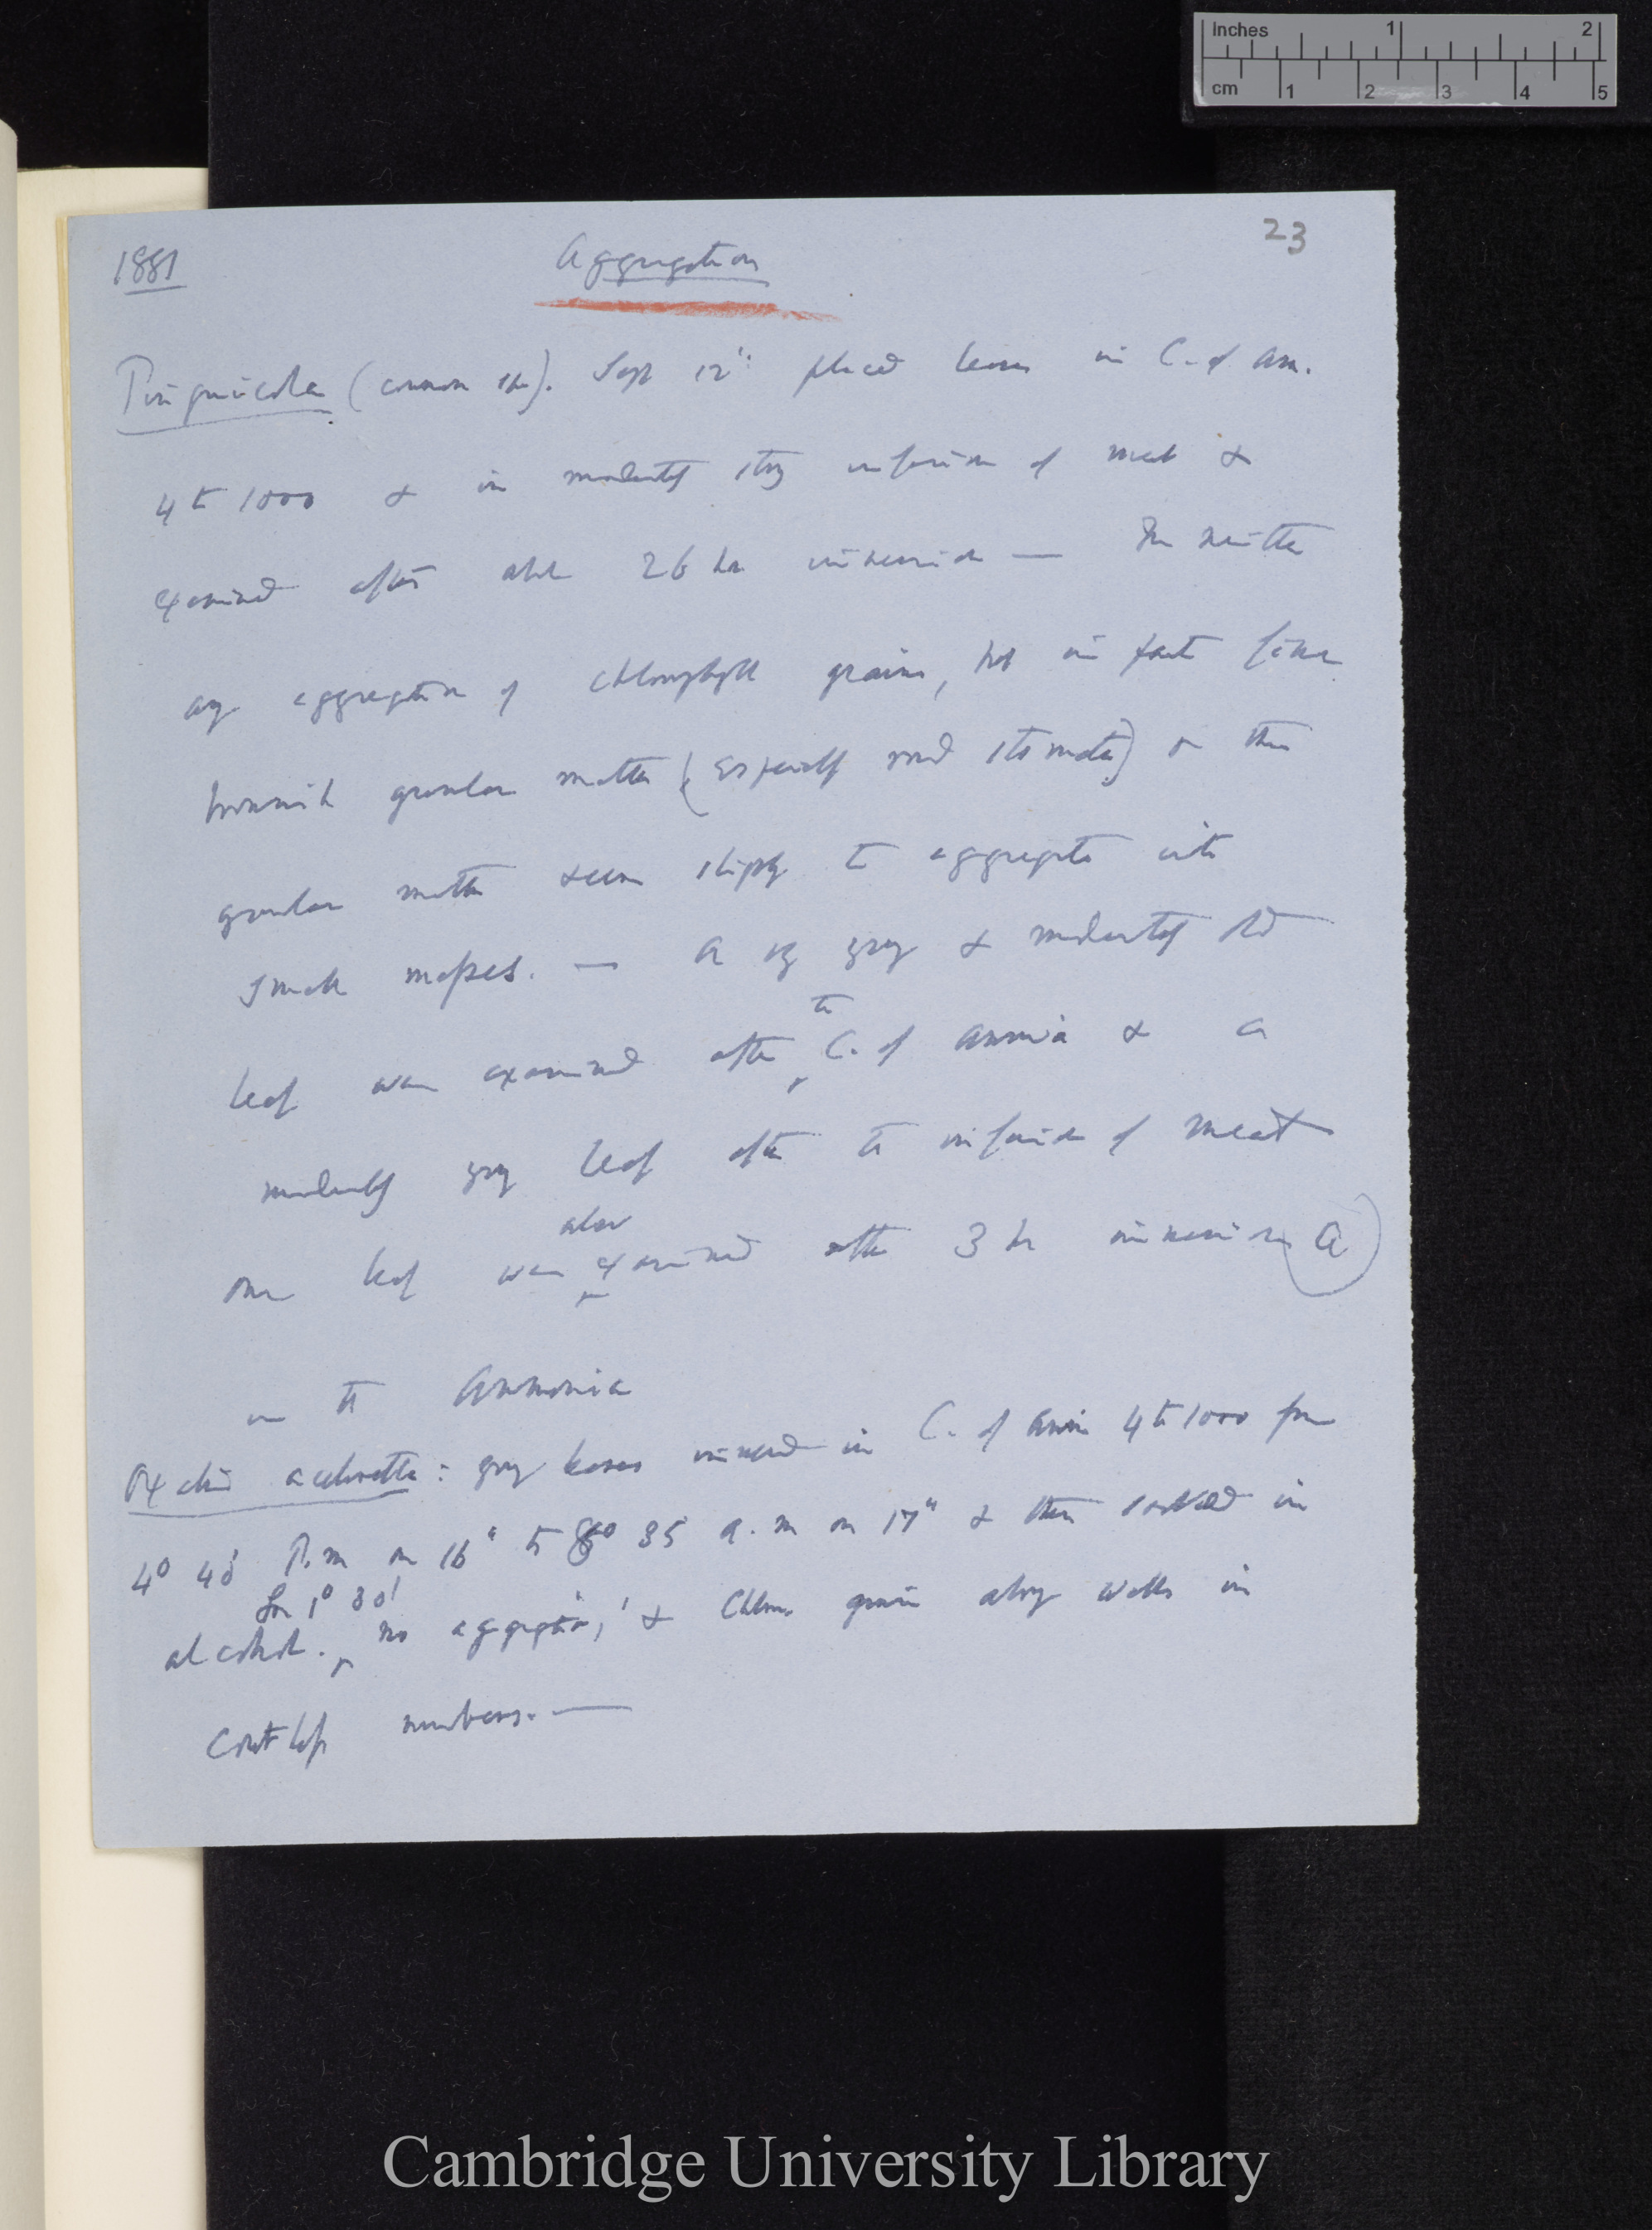 Inches 1 2
cm 1 2 3 4 5
23
1881 Aggregation
Pinguicola (common sp). Sept 12th placed leaves in C. of Am.
4 to 1000 & in moderately strong infusion of meat &
examined after about 26 hr immersion — In neither
any aggregation of chlorophyll grains, but in fact fine
brownish granular matter (especially round stomata) & this
granular matter seems slightly to aggregate into
small masses. — A vy young & moderately old
leaf was examined after the C. of ammonia & a
moderately young leaf after the infusion of meat
one leaf was also examined after 3 hr immersion (A)
in the Ammonia
Oxalis acetosella: young leaves immersed in C. of Amm 4 to 1000 from
4° 45' P.m on 16th to 8° 35 a.m on 17th & then soaked in
alcohol. for 1° 30' no aggregation, & Chloro. grains along walls in
countless numbers. —
Cambridge University Library